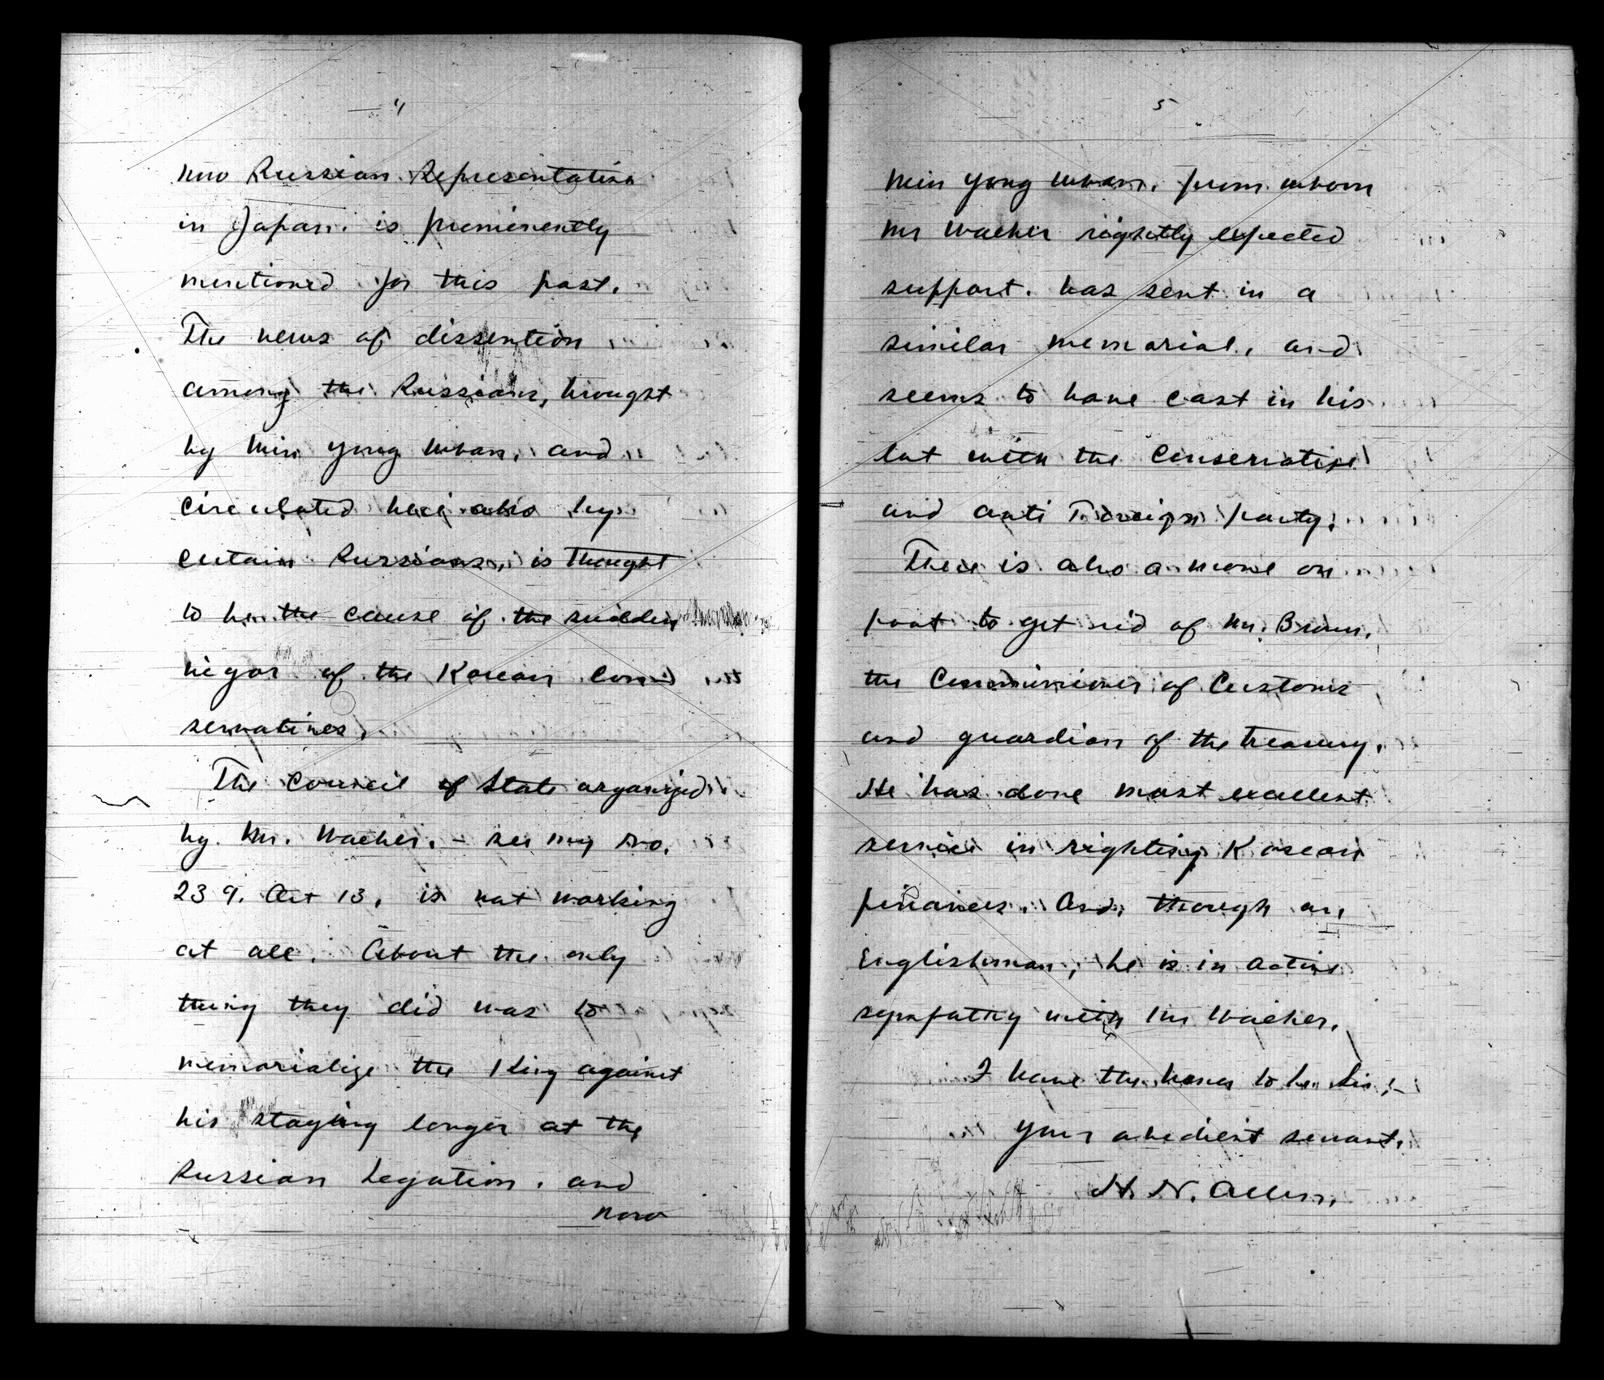 4
now Russian Representative
in Japan. is prominently
mentioned for this post.
The news of dissention
among the Russians, brought
by Min Yong Whan, and
circulated here also by
certain Russians, is thought
to be the cause of the sudden
vigor of the Korean Con-
servatives.
The Council of State organized
by Mr. Waeber, - see my No.
239. Oct 13, is not working
at all. About the only
thing they did was to
memorialize the King against
his staying longer at the
Russian Legation. and
now
5
Min Yong Whan, from whom
Mr Waeber rightly expected
support. has sent in a
similar memorial, and
seems to have cast in his
lot with the Conservative
and anti Foreign party.
There is also a move on
foot to get rid of Mr. Brown,
the Commissioner of Customs
and guardian of the treasury.
He has done most excellent
service in righting Korean
finances. And, though an
Englishman, he is in active
sympathy with Mr Waeber.
I have the honor to be Sir,-
Your obedient servant,
H. N. Allen.